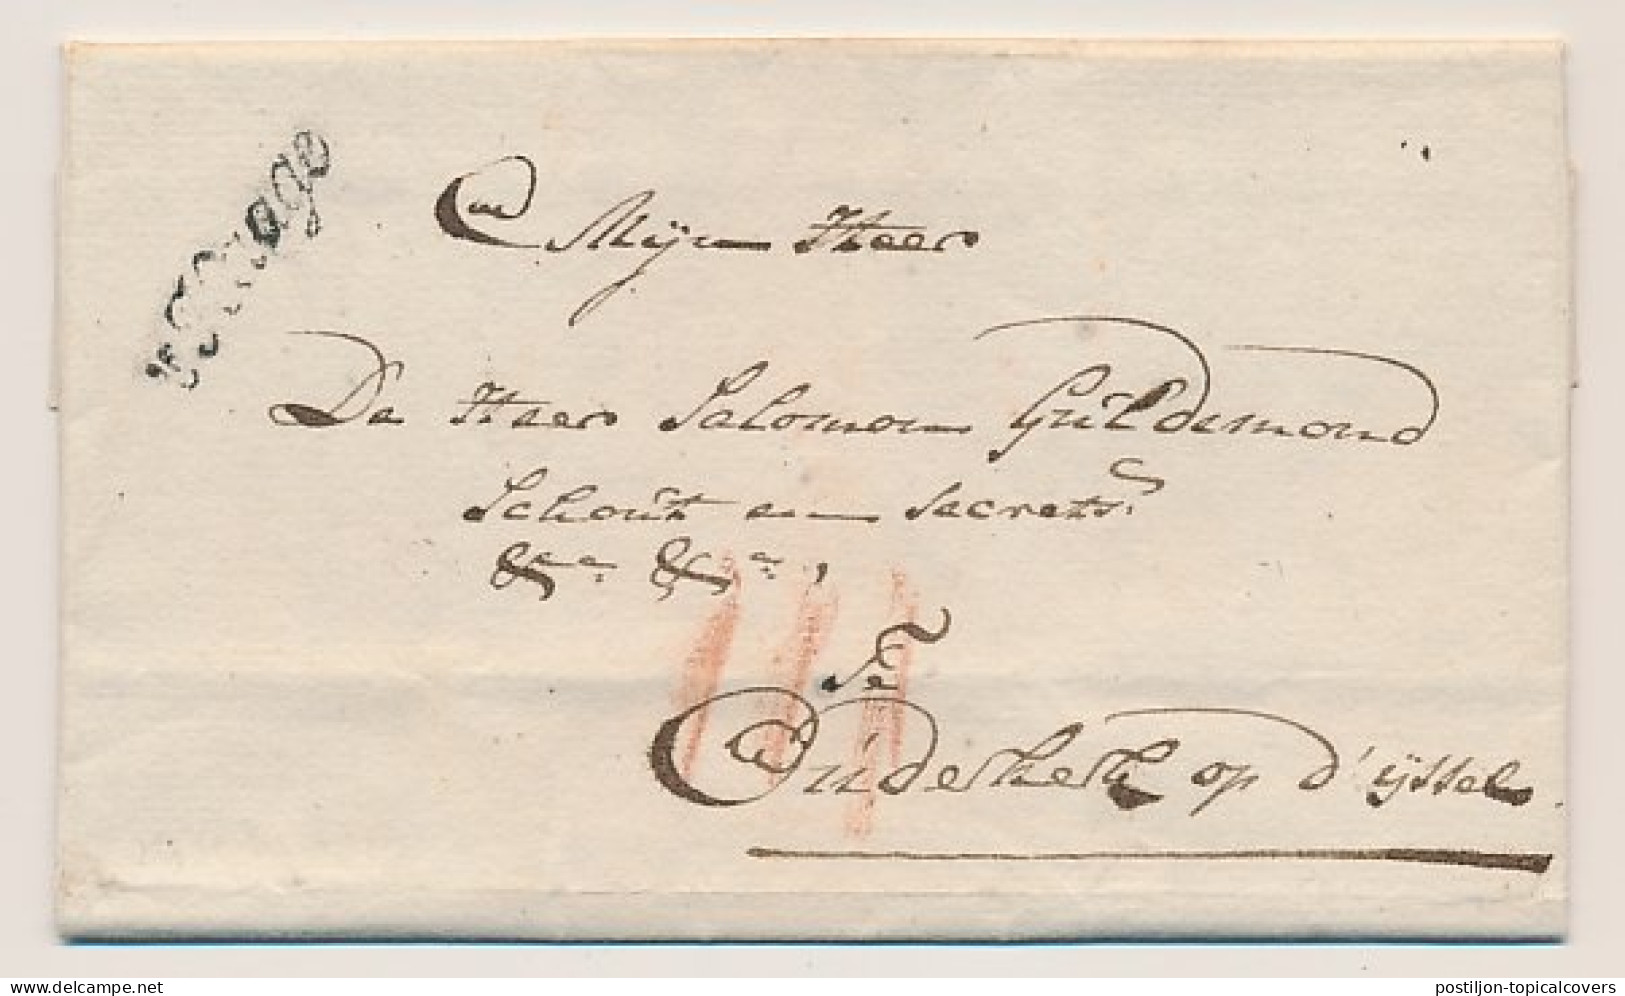 's Hage
Mijn Heer
De Heer Salomon Guldemond
Schout en Secrets.
&ca &ca,
Te
Ouderkerk op d'ijssel
delcampe.net
postiljon-topicalcovers